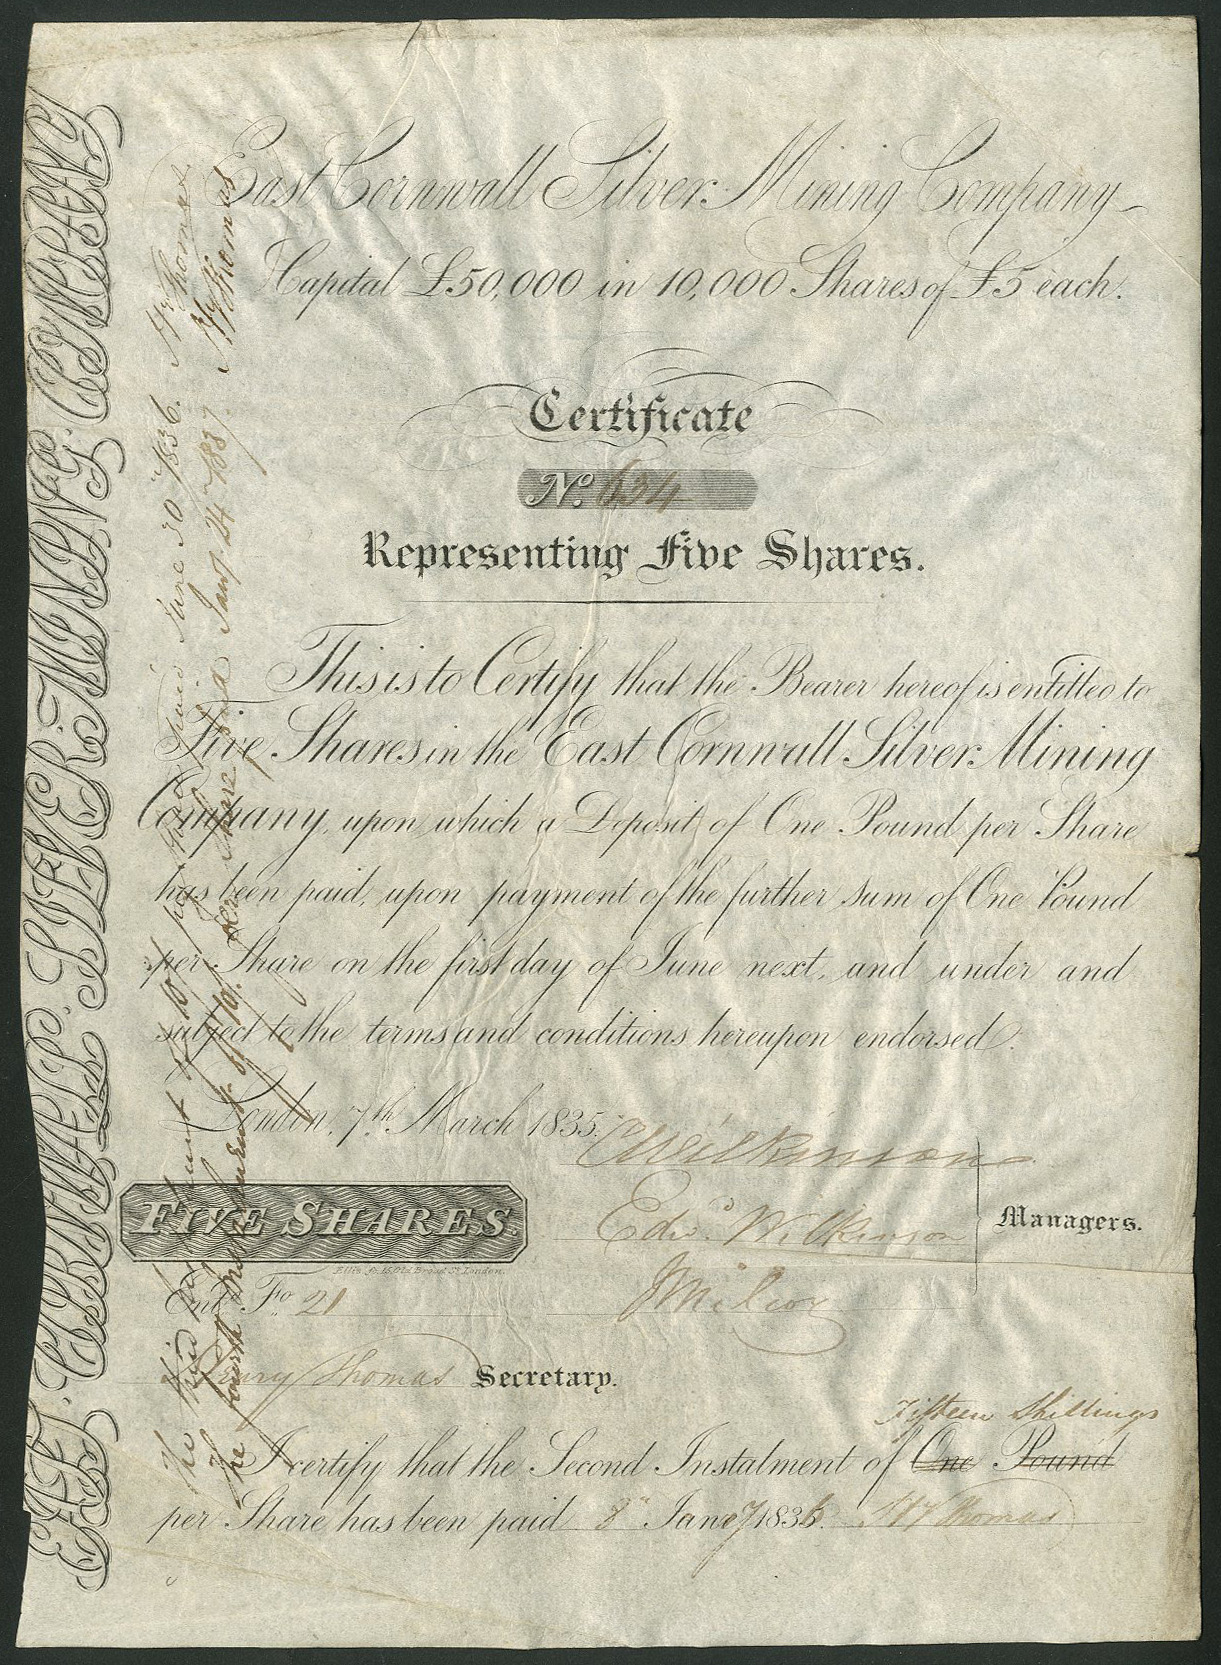 East Cornwall Silver Mining Company
Capital £50,000 in 10,000 Shares of £5 each.
Certificate
No. 634
Representing Five Shares.
This is to Certify that the Bearer hereof is entitled to
Five Shares in the East Cornwall Silver Mining
Company, upon which a Deposit of One Pound per Share
has been paid, upon payment of the further sum of One Pound
per Share on the first day of June next, and under and
subject to the terms and conditions hereupon endorsed.
London, 7th March 1835.
C Wilkinson
Edwd. Wilkinson
Managers.
FIVE SHARES.
Old Broad St. London.
Entd. Fo. 21
Henry Thomas Secretary.
Fifteen Shillings
I certify that the Second Instalment of One Pound
per Share has been paid 8" Jany 1836. Hy Thomas
EAST CORNWALL SILVER MINING COMPANY
The third instalment of 10/ per share paid June 30" 1836. Hy Thomas
The fourth instalment of 10/. per share paid Jany. 24" 1837. Hy Thomas